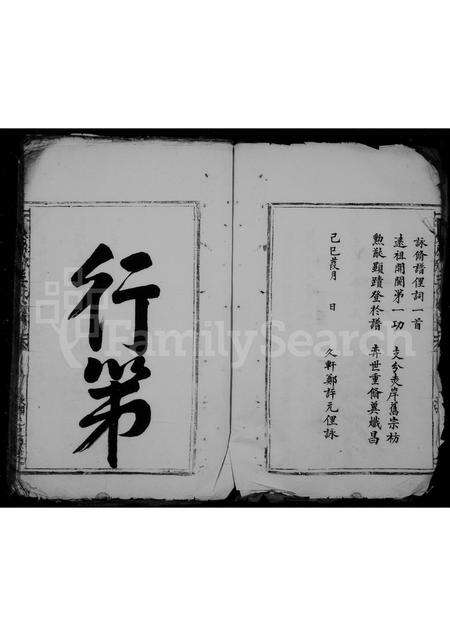 詠脩譜俚詞一首
遠祖開閩第一功 支分夾岸舊宗枋
勲猷顯蹟登於譜 奕世重脩冀熾昌
己巳葭月 日
久軒鄭許元俚詠
行第
FamilySearch